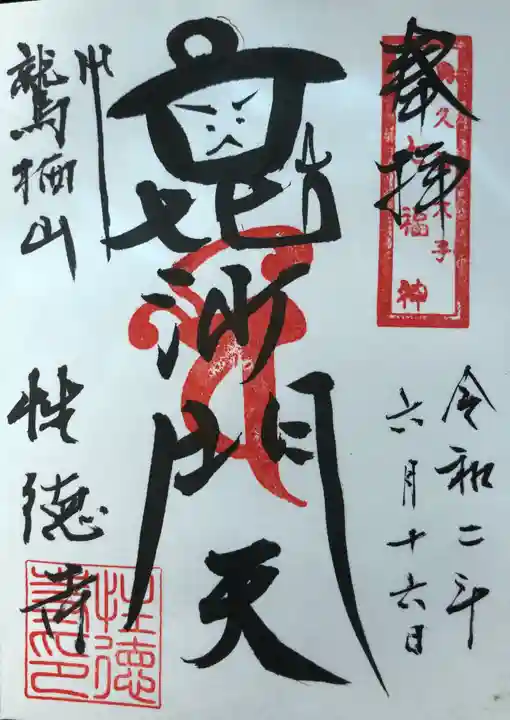 奉拝
久七福神
木子
令和二年
六月十六日
毘沙門天
鷲栖山
性徳寺
性徳
寺印